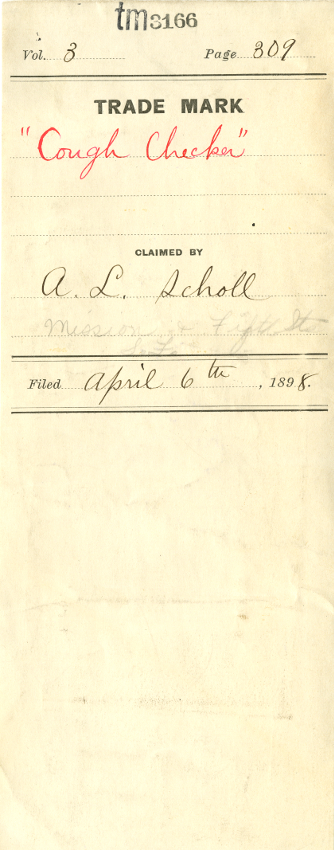 tm3166
Vol. 3 Page 309
TRADE MARK
"Cough Checker"
CLAIMED BY
A. L. Scholl
Mission & Fifth Sts
S. F.
Filed April 6th, 1898.